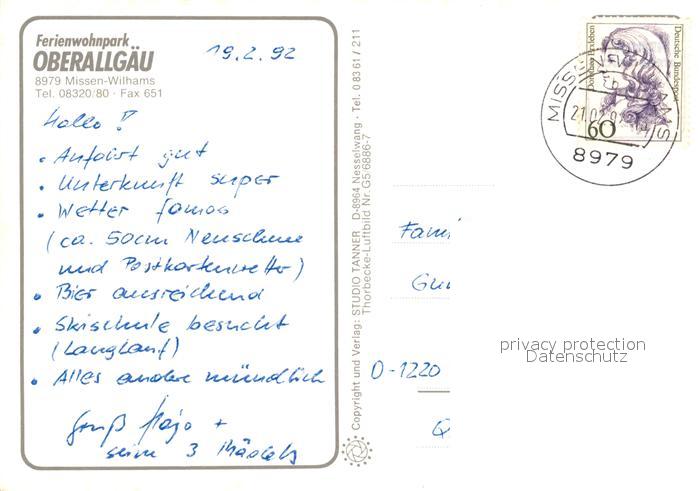 Ferienwohnpark
OBERALLGÄU
8979 Missen-Wilhams
Tel. 08320/80 · Fax 651
19.2.92
Hallo!
• Anfahrt gut
• Unterkunft super
• Wetter famos
(ca. 50cm Neuschnee
und Postkartenwetter)
• Bier ausreichend
• Skischule besucht
(Langlauf)
• Alles andere mündlich
Gruß Hajo +
seine 3 Mädels
Copyright und Verlag: STUDIO TANNER D-8964 Nesselwang · Tel. 0 83 61 / 211
Thorbecke-Luftbild Nr. G5/6886-7
Deutsche Bundespost
Dorothea Erxleben
60
MISSEN-WILHAMS
21.02.92
8979
Fami
Gun
D-1220
privacy protection
Datenschutz